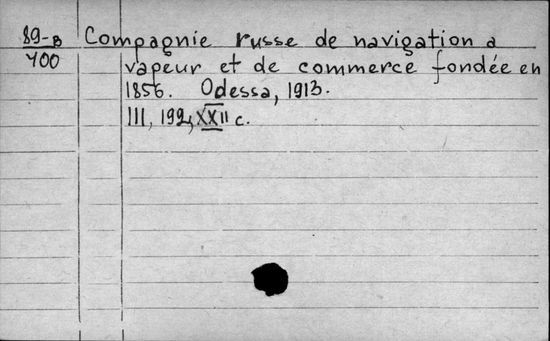 89-В Compagnie russe de navigation a
400 vapeur et de commerce fondée en
1856. Odessa, 1913.
III, 192, XXII c.